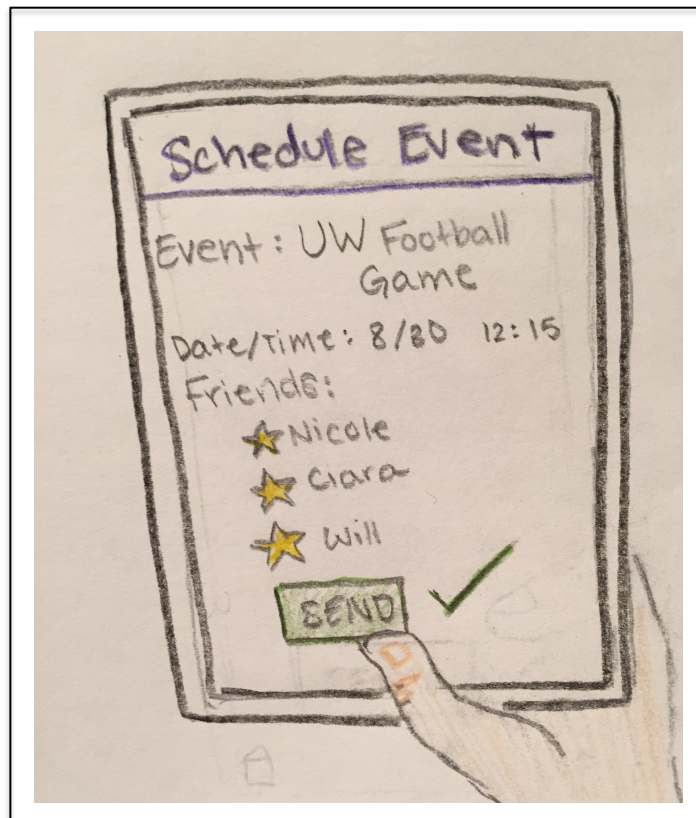 Schedule Event
Event: UW Football
Game
Date/Time: 8/30 12:15
Friends:
Nicole
Ciara
Will
SEND